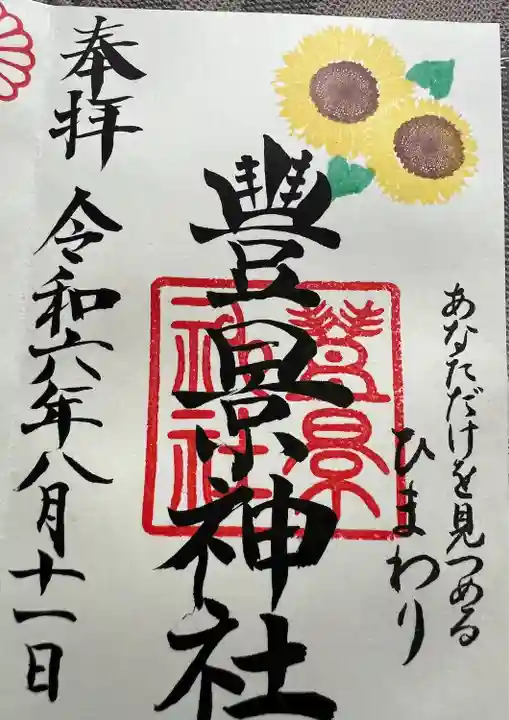 あなただけを見つめる
ひまわり
豐景神社
豐景
神社
奉拝 令和六年八月十一日